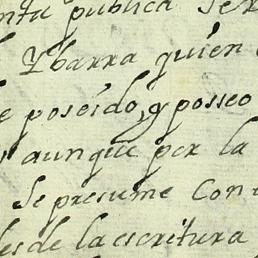 nta publica ser
Ybarra quien
poseido, y posseo
aunque por la
Se presume Con
desde la escritura